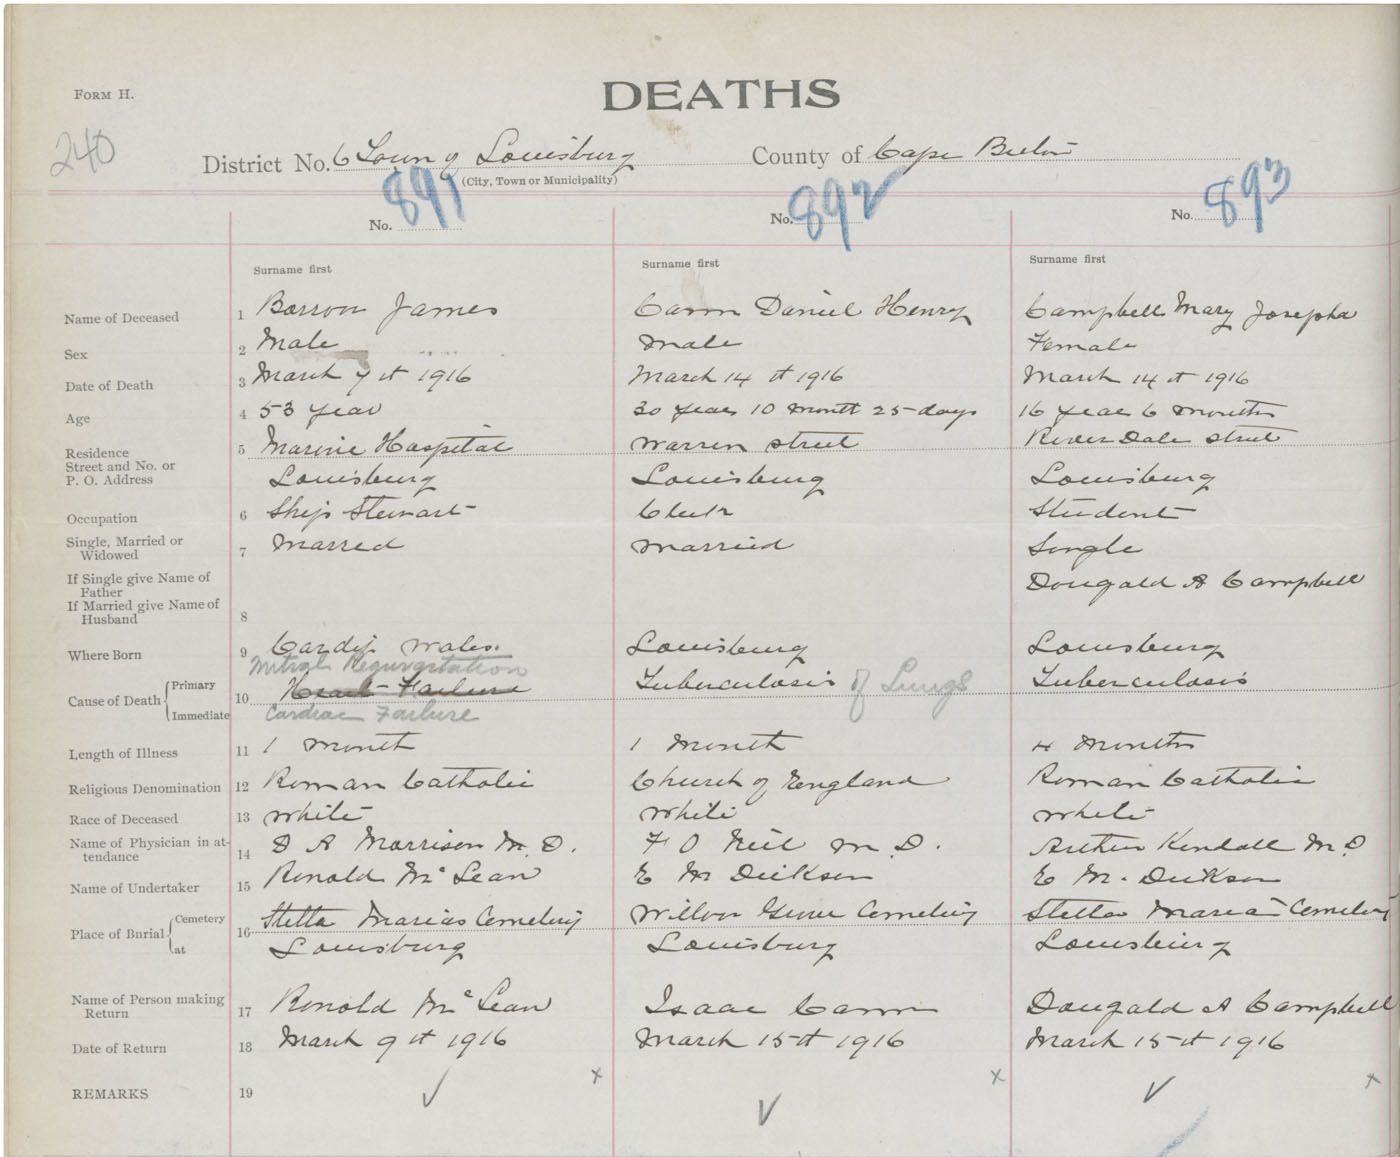 FORM H.
DEATHS
240
District No. 6 Town of Louisburg County of Cape Breton
(City, Town or Municipality)
No. 891 No. 892 No. 893
Surname first Surname first Surname first
Name of Deceased 1 Barron James Cann Daniel Henry Campbell Mary Josepha
Sex 2 Male Male Female
Date of Death 3 March 7th 1916 March 14th 1916 March 14th 1916
Age 4 53 year 30 years 10 month 25 days 16 years 6 months
Residence 5 Marine Hospital Warren street River Dale street
Street and No. or
P. O. Address Louisburg Louisburg Louisburg
Occupation 6 Ship Stewart Clerk Student
Single, Married or
Widowed 7 Married Married Single
If Single give Name of
Father Dougald A Campbell
If Married give Name of
Husband 8
Where Born 9 Cardif Wales. Louisburg Louisburg
Mitral Regurgitation
Cause of Death Primary 10 Heart Failure Tuberculosis of Lungs Tuberculosis
Immediate Cardiac Failure
Length of Illness 11 1 month 1 Month 4 Months
Religious Denomination 12 Roman Catholic Church of England Roman Catholic
Race of Deceased 13 White White White
Name of Physician in at-
tendance 14 D A Morrison M. D. F O Neil M. D. Arthur Kendall M D
Name of Undertaker 15 Ronald McLean E M Dickson E M. Dickson
Place of Burial Cemetery 16 Stella Marias Cemetery Cemetery Stella Maria Cemetery
at Louisburg Louisburg Louisburg
Name of Person making
Return 17 Ronald McLean Isaac Cann Dougald A Campbell
Date of Return 18 March 9th 1916 March 15th 1916 March 15th 1916
REMARKS 19